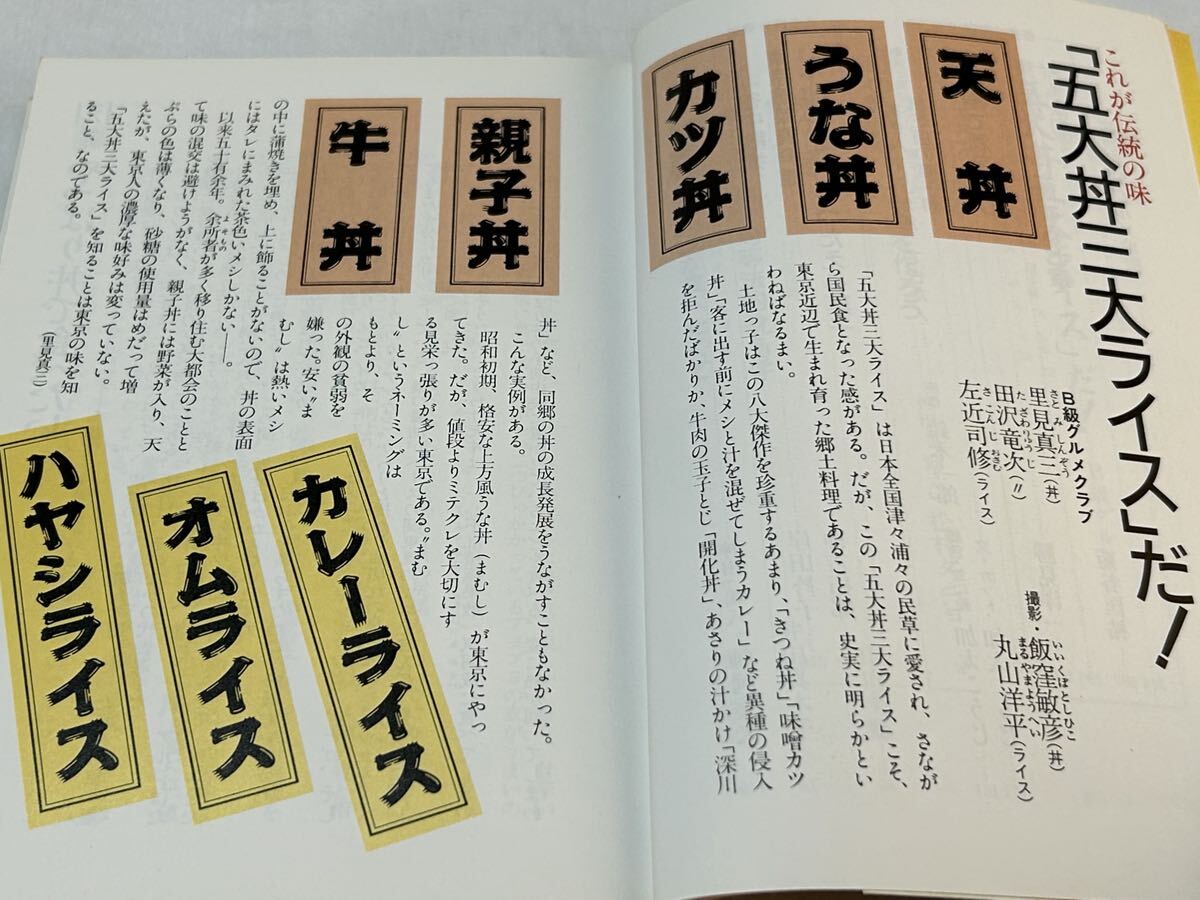 これが伝統の味
「五大丼三大ライス」だ!
B級グルメクラブ
里見真三(丼)
さとみしんぞう
田沢竜次(〃)
たざわりゅうじ
左近司修(ライス)
さこんじおさむ
撮影・飯窪敏彦(丼)
いいくぼとしひこ
丸山洋平(ライス)
まるやまようへい
天丼
うな丼
カツ丼
「五大丼三大ライス」は日本全国津々浦々の民草に愛され、さなが
ら国民食となった感がある。だが、この「五大丼三大ライス」こそ、
東京近辺で生まれ育った郷土料理であることは、史実に明らかとい
わねばなるまい。
土地っ子はこの八大傑作を珍重するあまり、「きつね丼」「味噌カツ
丼」「客に出す前にメシと汁を混ぜてしまうカレー」など異種の侵入
を拒んだばかりか、牛肉の玉子とじ「開化丼」、あさりの汁かけ「深川
親子丼
牛丼
丼」など、同郷の丼の成長発展をうながすこともなかった。
こんな実例がある。
昭和初期、格安な上方風うな丼(まむし)が東京にやっ
てきた。だが、値段よりミテクレを大切にす
る見栄っ張りが多い東京である。〝まむ
し〟というネーミングは
もとより、そ
の外観の貧弱を
嫌った。安い〝ま
むし〟は熱いメシ
の中に蒲焼きを埋め、上に飾ることがないので、丼の表面
にはタレにまみれた茶色いメシしかない――。
以来五十有余年。余所者が多く移り住む大都会のこととて
よそもの
味の混交は避けようがなく、親子丼には野菜が入り、天
ぷらの色は薄くなり、砂糖の使用量はめだって増
えたが、東京人の濃厚な味好みは変っていない。
「五大丼三大ライス」を知ることは東京の味を知
ること、なのである。
(里見真三)
カレーライス
オムライス
ハヤシライス